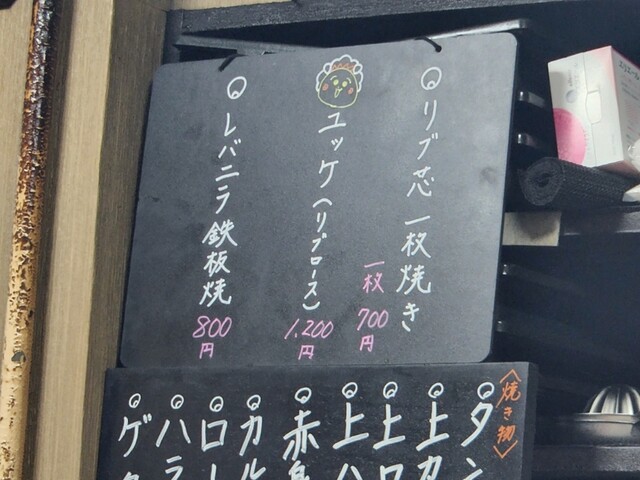 リブ芯一枚焼き
一枚 700円
ユッケ(リブロース)
1,200円
レバニラ鉄板焼
800円
〈焼き物〉
タン
上カ
上ロ
上ハ
赤身
カル
ロー
ハラ
ゲ